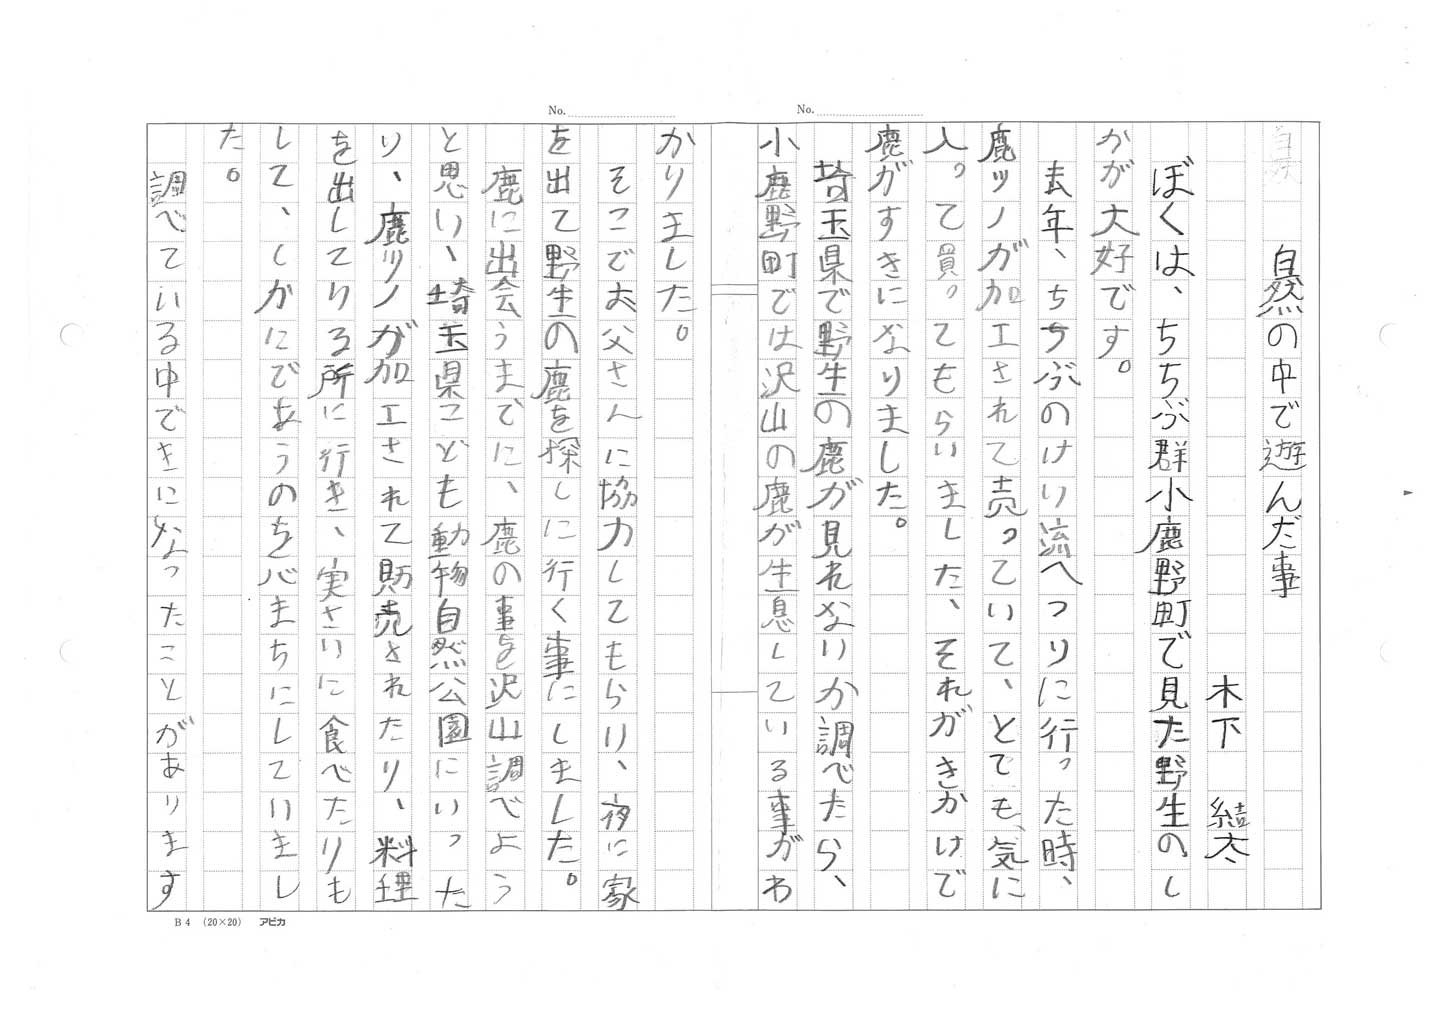 No.
No.
自然の中で遊んだ事
木下 結太
ぼくは、ちちぶ群小鹿野町で見た野生のし
かが大好です。
去年、ちちぶのけい流へつりに行った時、
鹿ツノが加工されて売っていて、とても、気に
入。て買。てもらいました、それがきかけで
鹿がすきになりました。
埼玉県で野生の鹿が見れないか調べたら、
小鹿野町では沢山の鹿が生息している事がわ
かりました。
そこでお父さんに協力してもらい、夜に家
を出て野生の鹿を探しに行く事にしました。
鹿に出会うまでに、鹿の事を沢山調べよう
と思い、埼玉県こども動物自然公園にいった
り、鹿ツノが加工されて販売されたり、料理
を出している所に行き、実さいに食べたりも
して、しかにであうのを心まちにしていまし
た。
調べている中できになったことがあります
B4 (20×20) アピカ